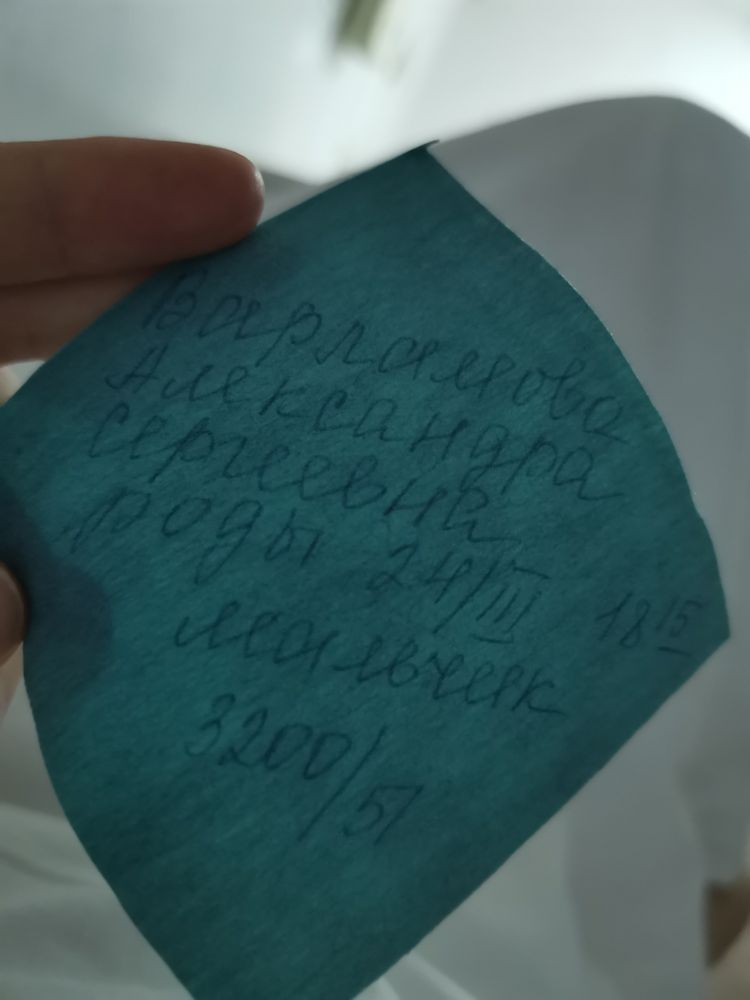 Варламова
Александра
Сергеевна
роды 24/III 18 15
мальчик
3200/51